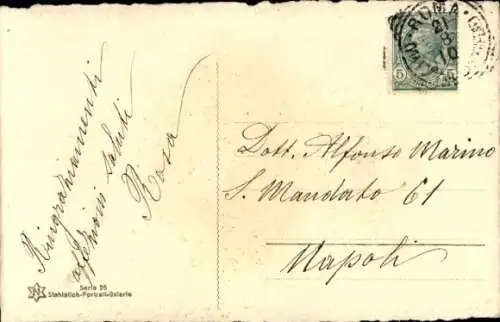 Ringraziamenti
affezioni saluti
Rosa
Dott. Alfonso Marino
S. Mandato 61
Napoli
ROMA
5
Serie 26
Stahlstich-Portrait-Galerie